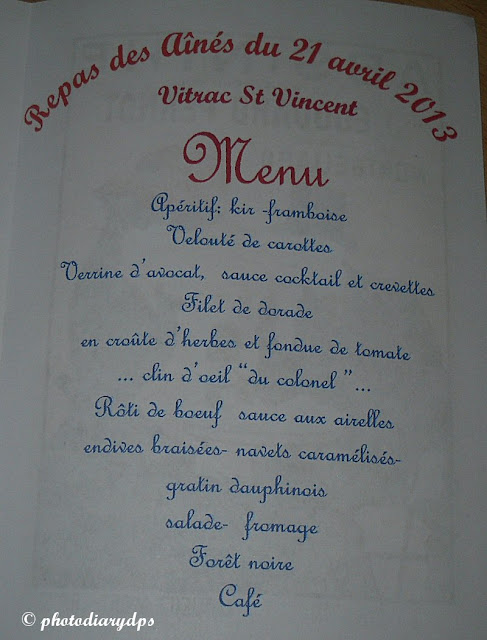 Repas des Aînés du 21 avril 2013
Vitrac St Vincent
Menu
Apéritif: kir -framboise
Velouté de carottes
Verrine d'avocat, sauce cocktail et crevettes
Filet de dorade
en croûte d'herbes et fondue de tomate
... clin d'oeil "du colonel "...
Rôti de boeuf sauce aux airelles
endives braisées- navets caramélisés-
gratin dauphinois
salade- fromage
Forêt noire
Café
© photodiarydps